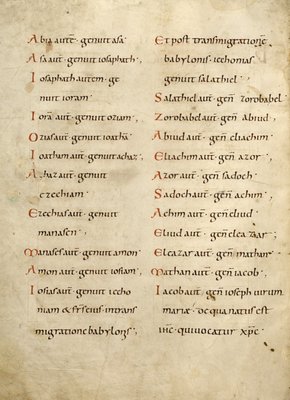 Abia aute̅· genuit asa·
Asa aut̅· genuit iosaphath·,
Iosaphath autem· ge
nuit ioram·
Iora̅ aut̅· genuit oziam·,
Ozias aut̅· genuit ioatha̅·
Ioatham aut̅· genuit achaz·,
Achaz aut̅· genuit
ezechiam·
Ezechias aut̅· genuit
manasen·,
Manases aut̅· genuit amon·
Amon aut̅· genuit iosiam·,
Iosias aut̅· genuit iecho
niam & fr̅s eius· in trans
migratione babylonis·,
Et post transmigratione̅·
babylonis· iechonias·
genuit salathiel·,
Salathiel aut̅· gen̅· zorobabel·
Zorobabel aut̅· gen̅· abiud·,
Abiud aut̅· gen̅· eliachim·
Eliachim aut̅· gen̅· azor·,
Azor aut̅· gen̅· sadoch·
Sadoch aut̅· gen̅· achim·,
Achim aut̅· gen̅· eliud·
Eliud aut̅· gen̅· eleazar·,
Eleazar aut̅· gen̅· mathan·
Mathan aut̅· gen̅· iacob·,
Iacob aut̅· gen̅· ioseph· uirum·
mariæ· de qua natus est
ih̅c· qui uocatur xp̅c·